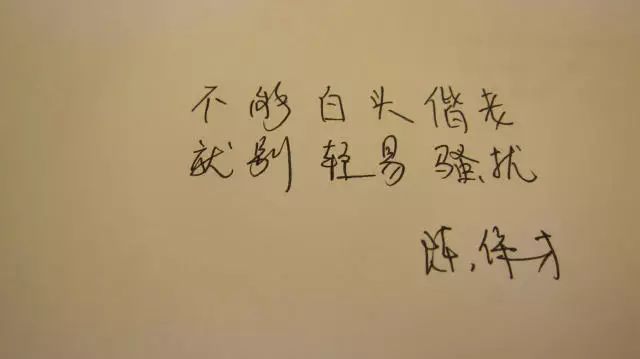 不够白头偕老
就别轻易骚扰
陈保才